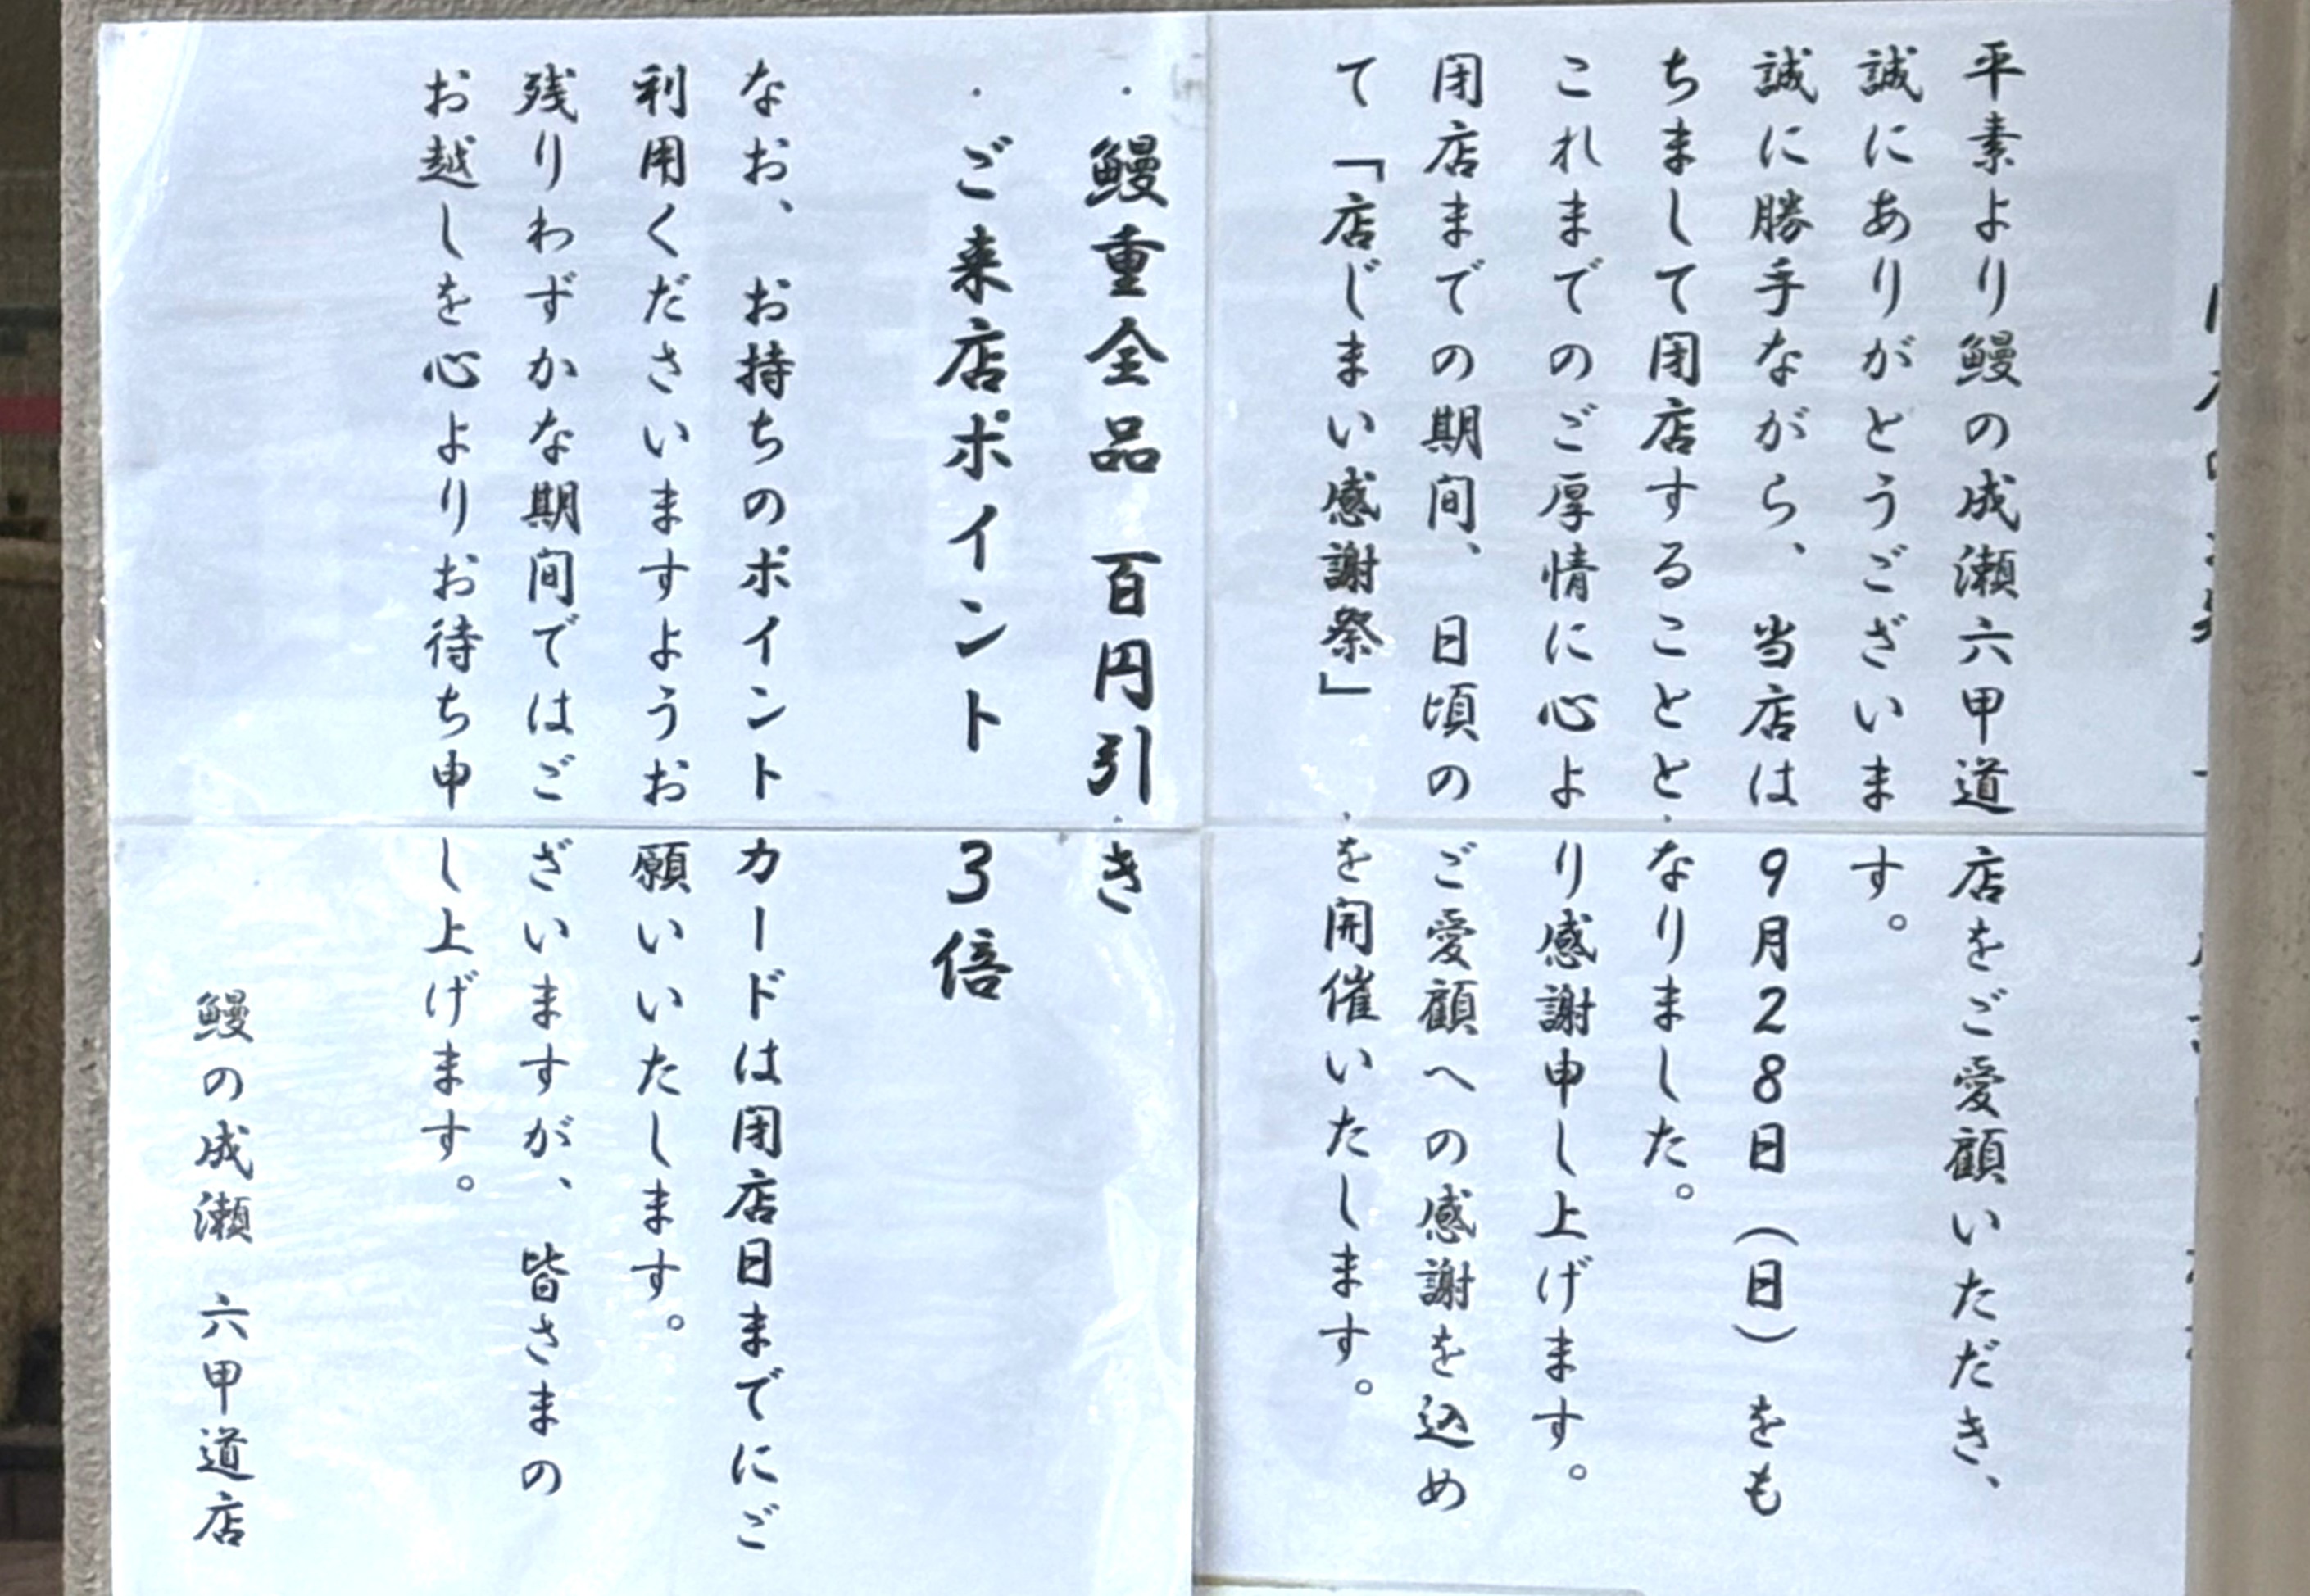 平素より鰻の成瀬六甲道店をご愛顧いただき、
誠にありがとうございます。
誠に勝手ながら、当店は9月28日（日）をも
ちまして閉店することとなりました。
これまでのご厚情に心より感謝申し上げます。
閉店までの期間、日頃のご愛顧への感謝を込め
て「店じまい感謝祭」を開催いたします。
・鰻重全品 百円引き
・ご来店ポイント 3倍
なお、お持ちのポイントカードは閉店日までにご
利用くださいますようお願いいたします。
残りわずかな期間ではございますが、皆さまの
お越しを心よりお待ち申し上げます。
鰻の成瀬 六甲道店